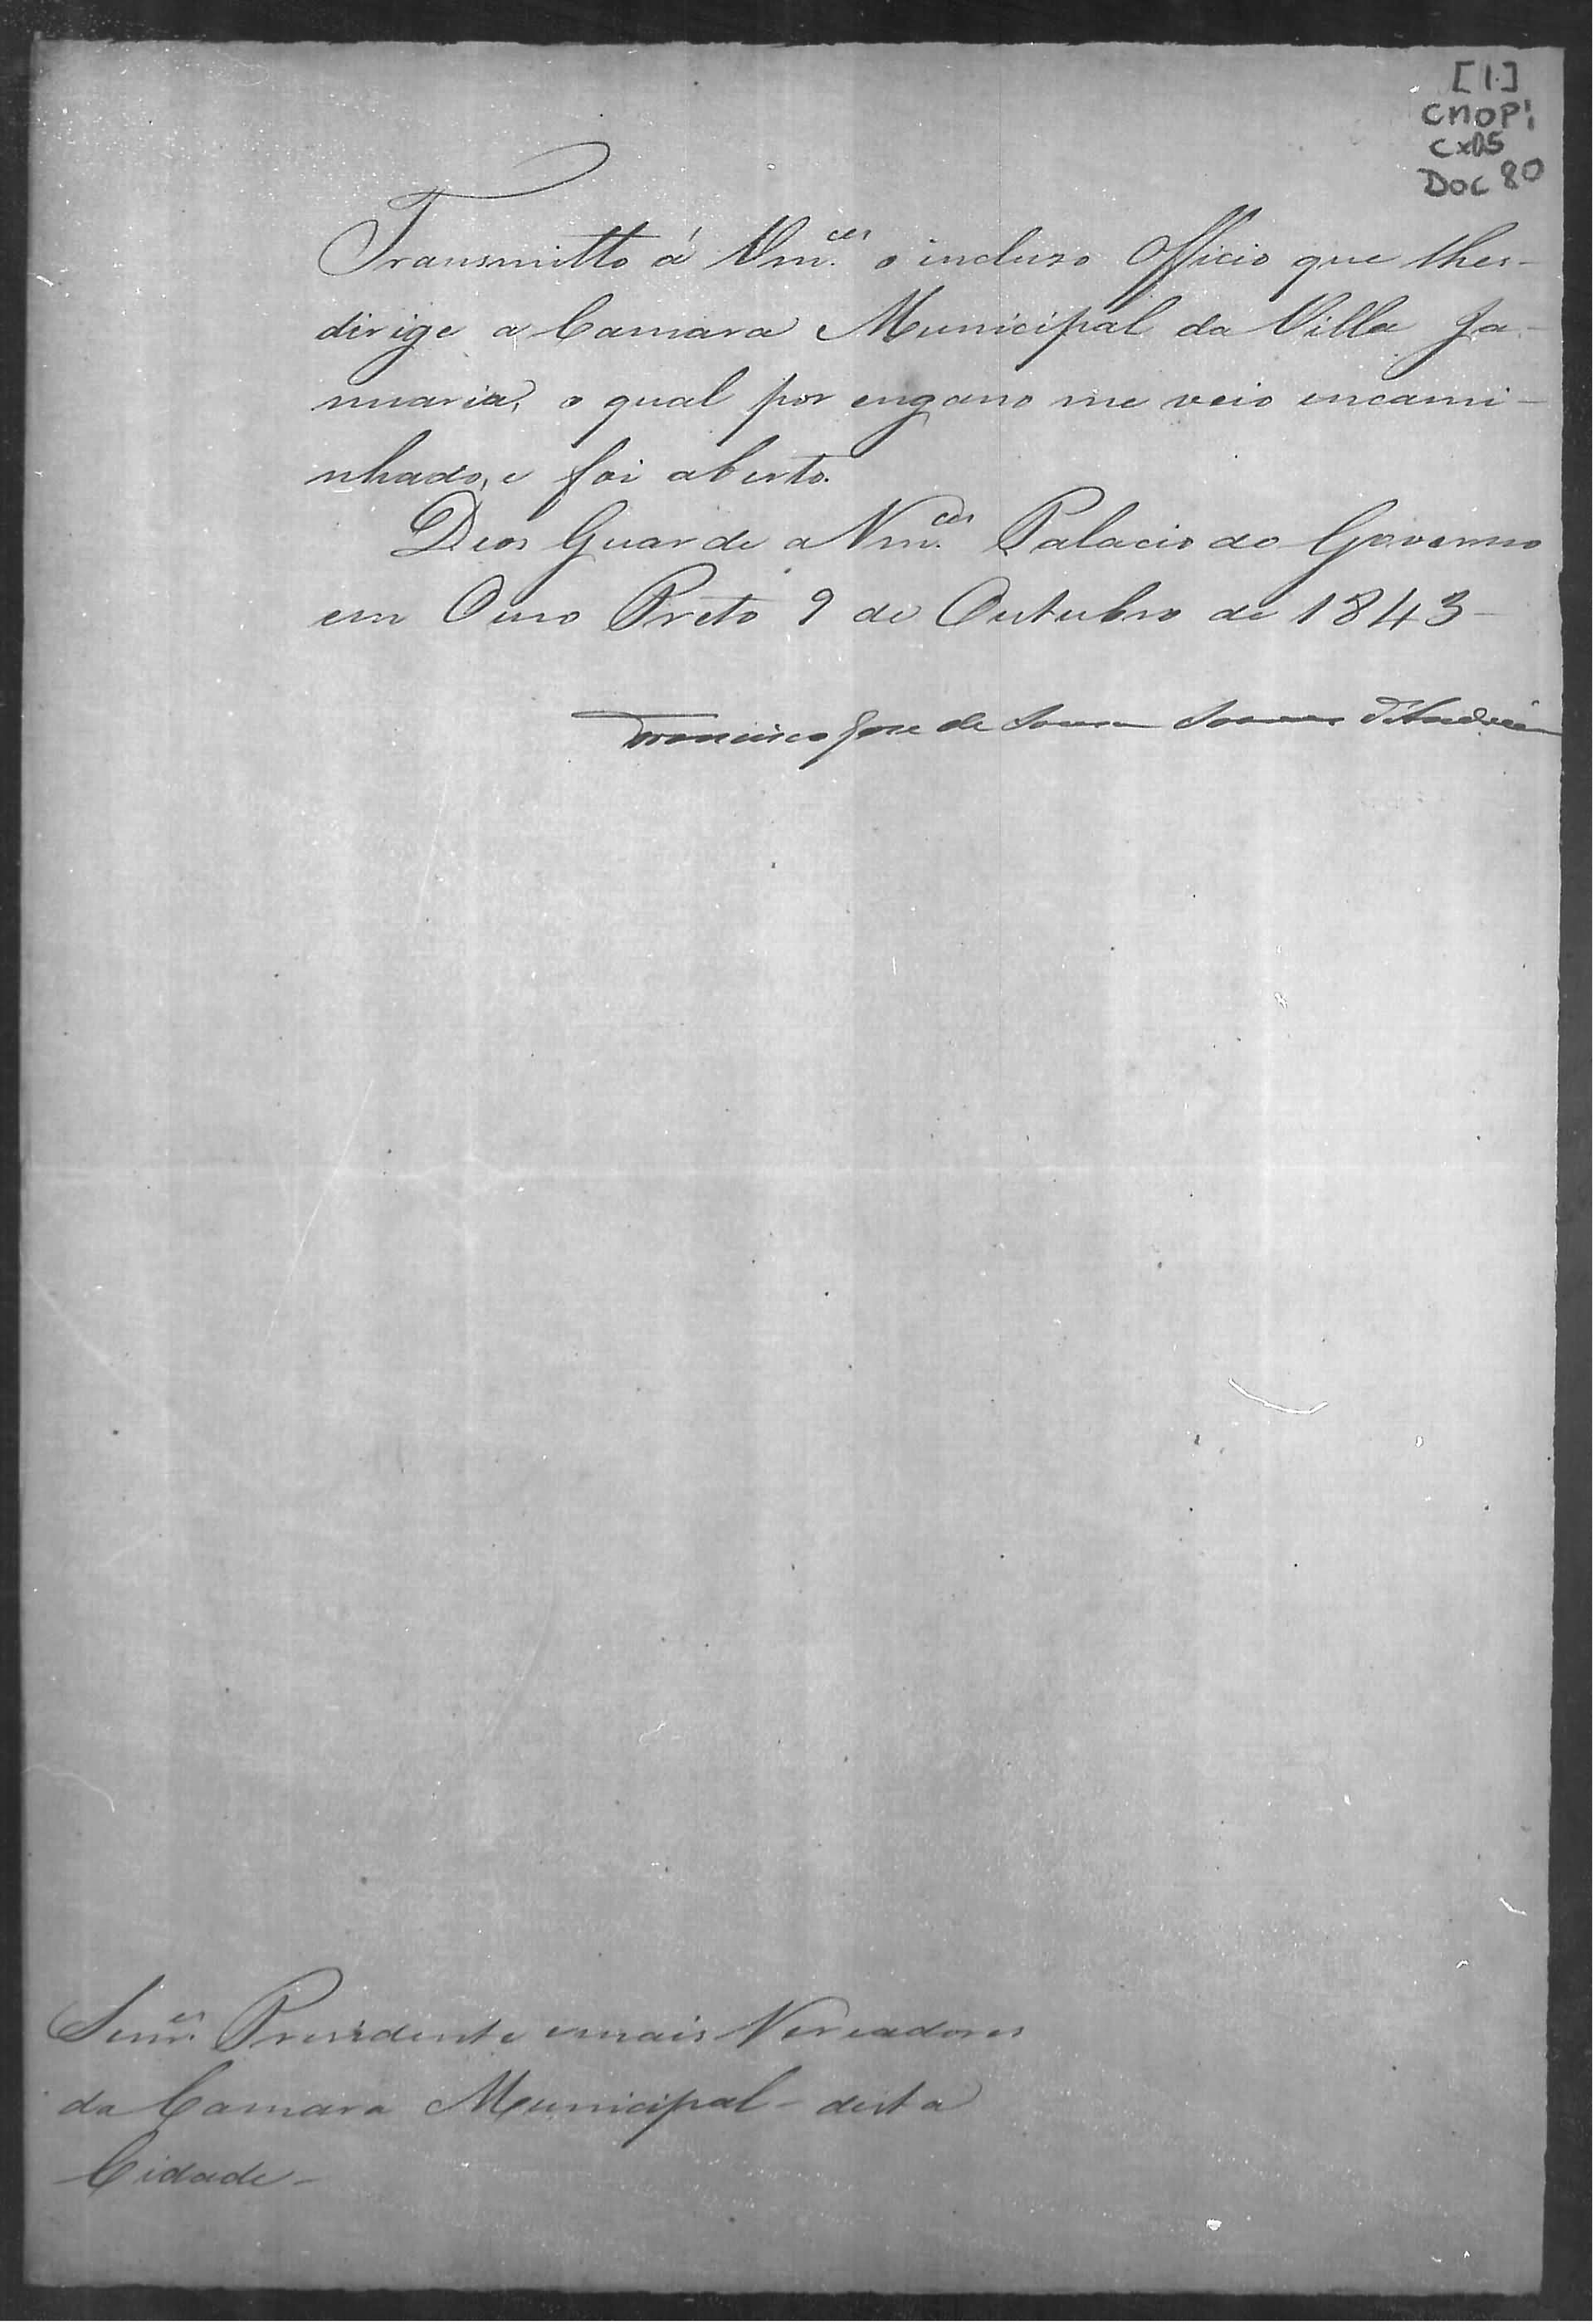 [1]
CMOP
Cx 05
Doc 80
Transmitto á Vm.ces o incluzo Officio que lhes
dirige a Camara Municipal da Villa Ja-
nuaria, o qual por engano me veio encami-
nhado, e foi aberto.
Deos Guarde a Vm.ces Palacio do Governo
em Ouro Preto 9 de Outubro de 1843
Francisco Jose de Sousa Soares d'Andrea
Senr.es Presidente e mais Vereadores
da Camara Municipal desta
Cidade